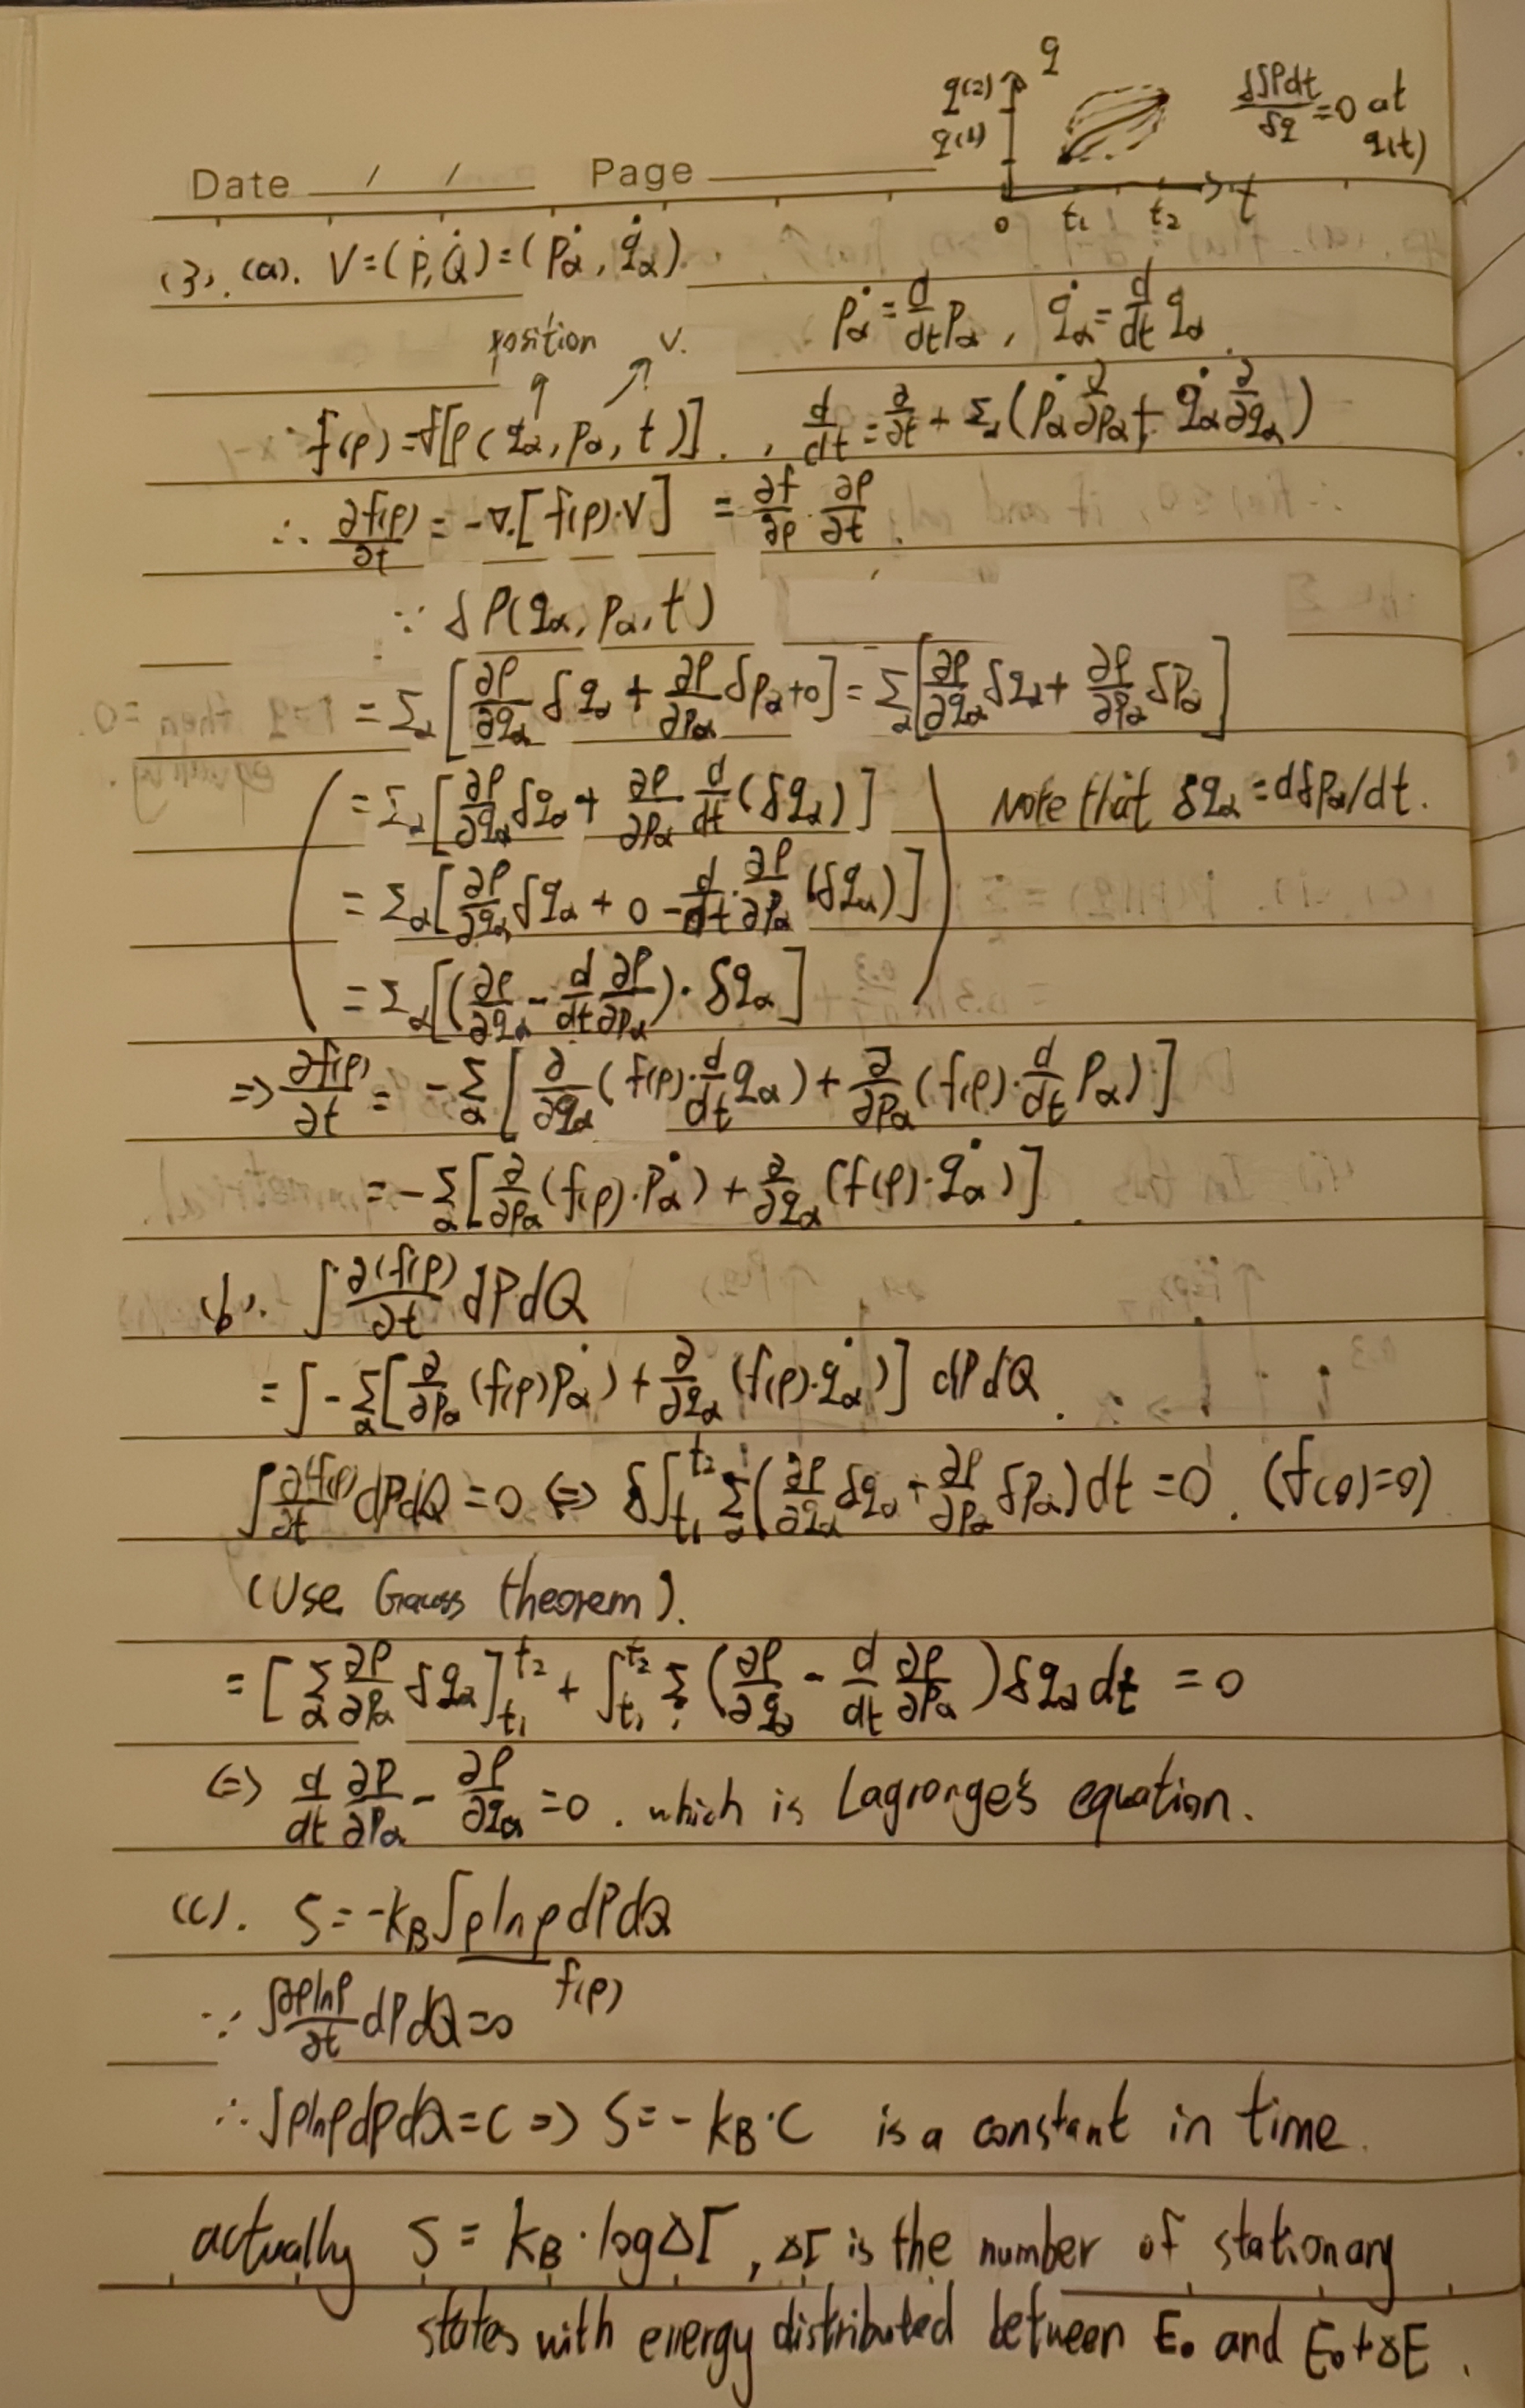 q
q(2)
q(1)
0 t₁ t₂ t
δ∫ρdt/δq = 0 at q(t)
Date / / Page
(3). (a). V = (Ṗ, Q̇) = (ṗα, q̇α).
ṗα = d/dt pα , q̇α = d/dt qα .
position v.
∵ f(ρ) = f[ρ(qα, pα, t)] . , d/dt = ∂/∂t + Σα(ṗα ∂/∂pα + q̇α ∂/∂qα)
∴ ∂f(ρ)/∂t = -∇·[f(ρ)·V] = ∂f/∂ρ · ∂ρ/∂t .
∵ δρ(qα, pα, t)
= Σα[∂ρ/∂qα δqα + ∂ρ/∂pα δpα + 0] = Σα[∂ρ/∂qα δqα + ∂ρ/∂pα δpα]
= Σα[∂ρ/∂qα δqα + ∂ρ/∂pα d/dt(δqα)] Note that δqα = dδpα/dt.
= Σα[∂ρ/∂qα δqα + 0 - d/dt · ∂ρ/∂pα (δqα)]
= Σα[(∂ρ/∂qα - d/dt ∂ρ/∂pα) · δqα]
=> ∂f(ρ)/∂t = -Σα[∂/∂qα (f(ρ)·d/dt qα) + ∂/∂pα (f(ρ)·d/dt pα)]
= -Σα[∂/∂pα (f(ρ)·ṗα) + ∂/∂qα (f(ρ)·q̇α)] .
(b). ∫ ∂(f(ρ)/∂t dPdQ
= ∫ -Σα[∂/∂pα (f(ρ)ṗα) + ∂/∂qα (f(ρ)·q̇α)] dPdQ .
∫ ∂f(ρ)/∂t dPdQ = 0 <=> δ∫t₁^t₂ Σα(∂ρ/∂qα δqα + ∂ρ/∂pα δpα)dt = 0 . (f(0)=0)
(Use Gauss theorem).
= [Σα ∂ρ/∂pα δqα]t₁^t₂ + ∫t₁^t₂ Σ(∂ρ/∂qα - d/dt ∂ρ/∂pα)δqα dt = 0
<=> d/dt ∂ρ/∂pα - ∂ρ/∂qα = 0 . which is Lagrange's equation.
(c). S = -kB∫ρlnρdPdQ
f(ρ)
∵ ∫∂ρlnρ/∂t dPdQ = 0
∴ ∫ρlnρdPdQ = C => S = -kB·C is a constant in time.
actually S = kB·logΔΓ , ΔΓ is the number of stationary
states with energy distributed between E₀ and E₀+ΔE .